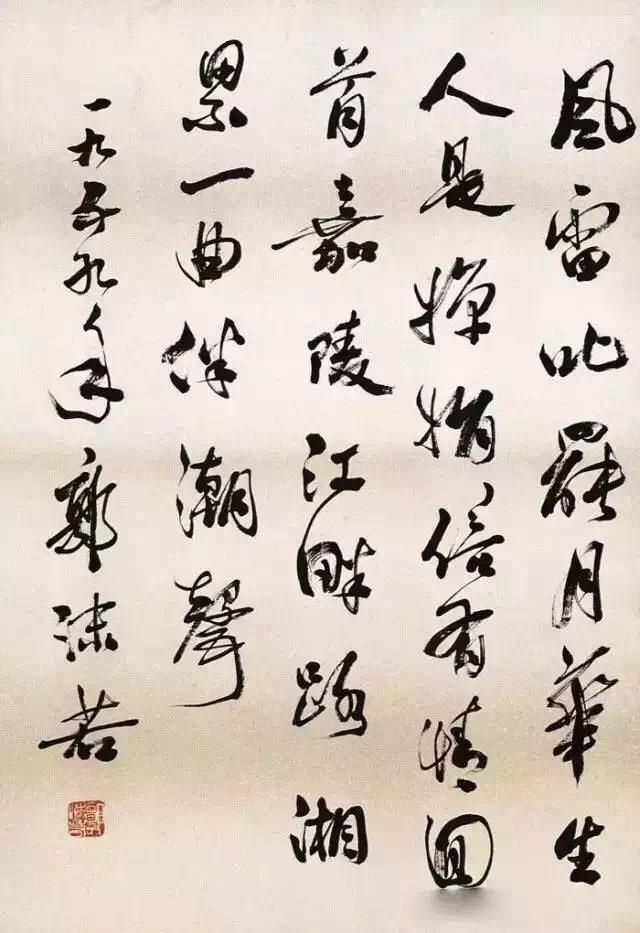 風雷叱罷月華生
人是嬋娟倍有情回
首嘉陵江畔路湘
累一曲伴潮聲
一九五九年郭沫若